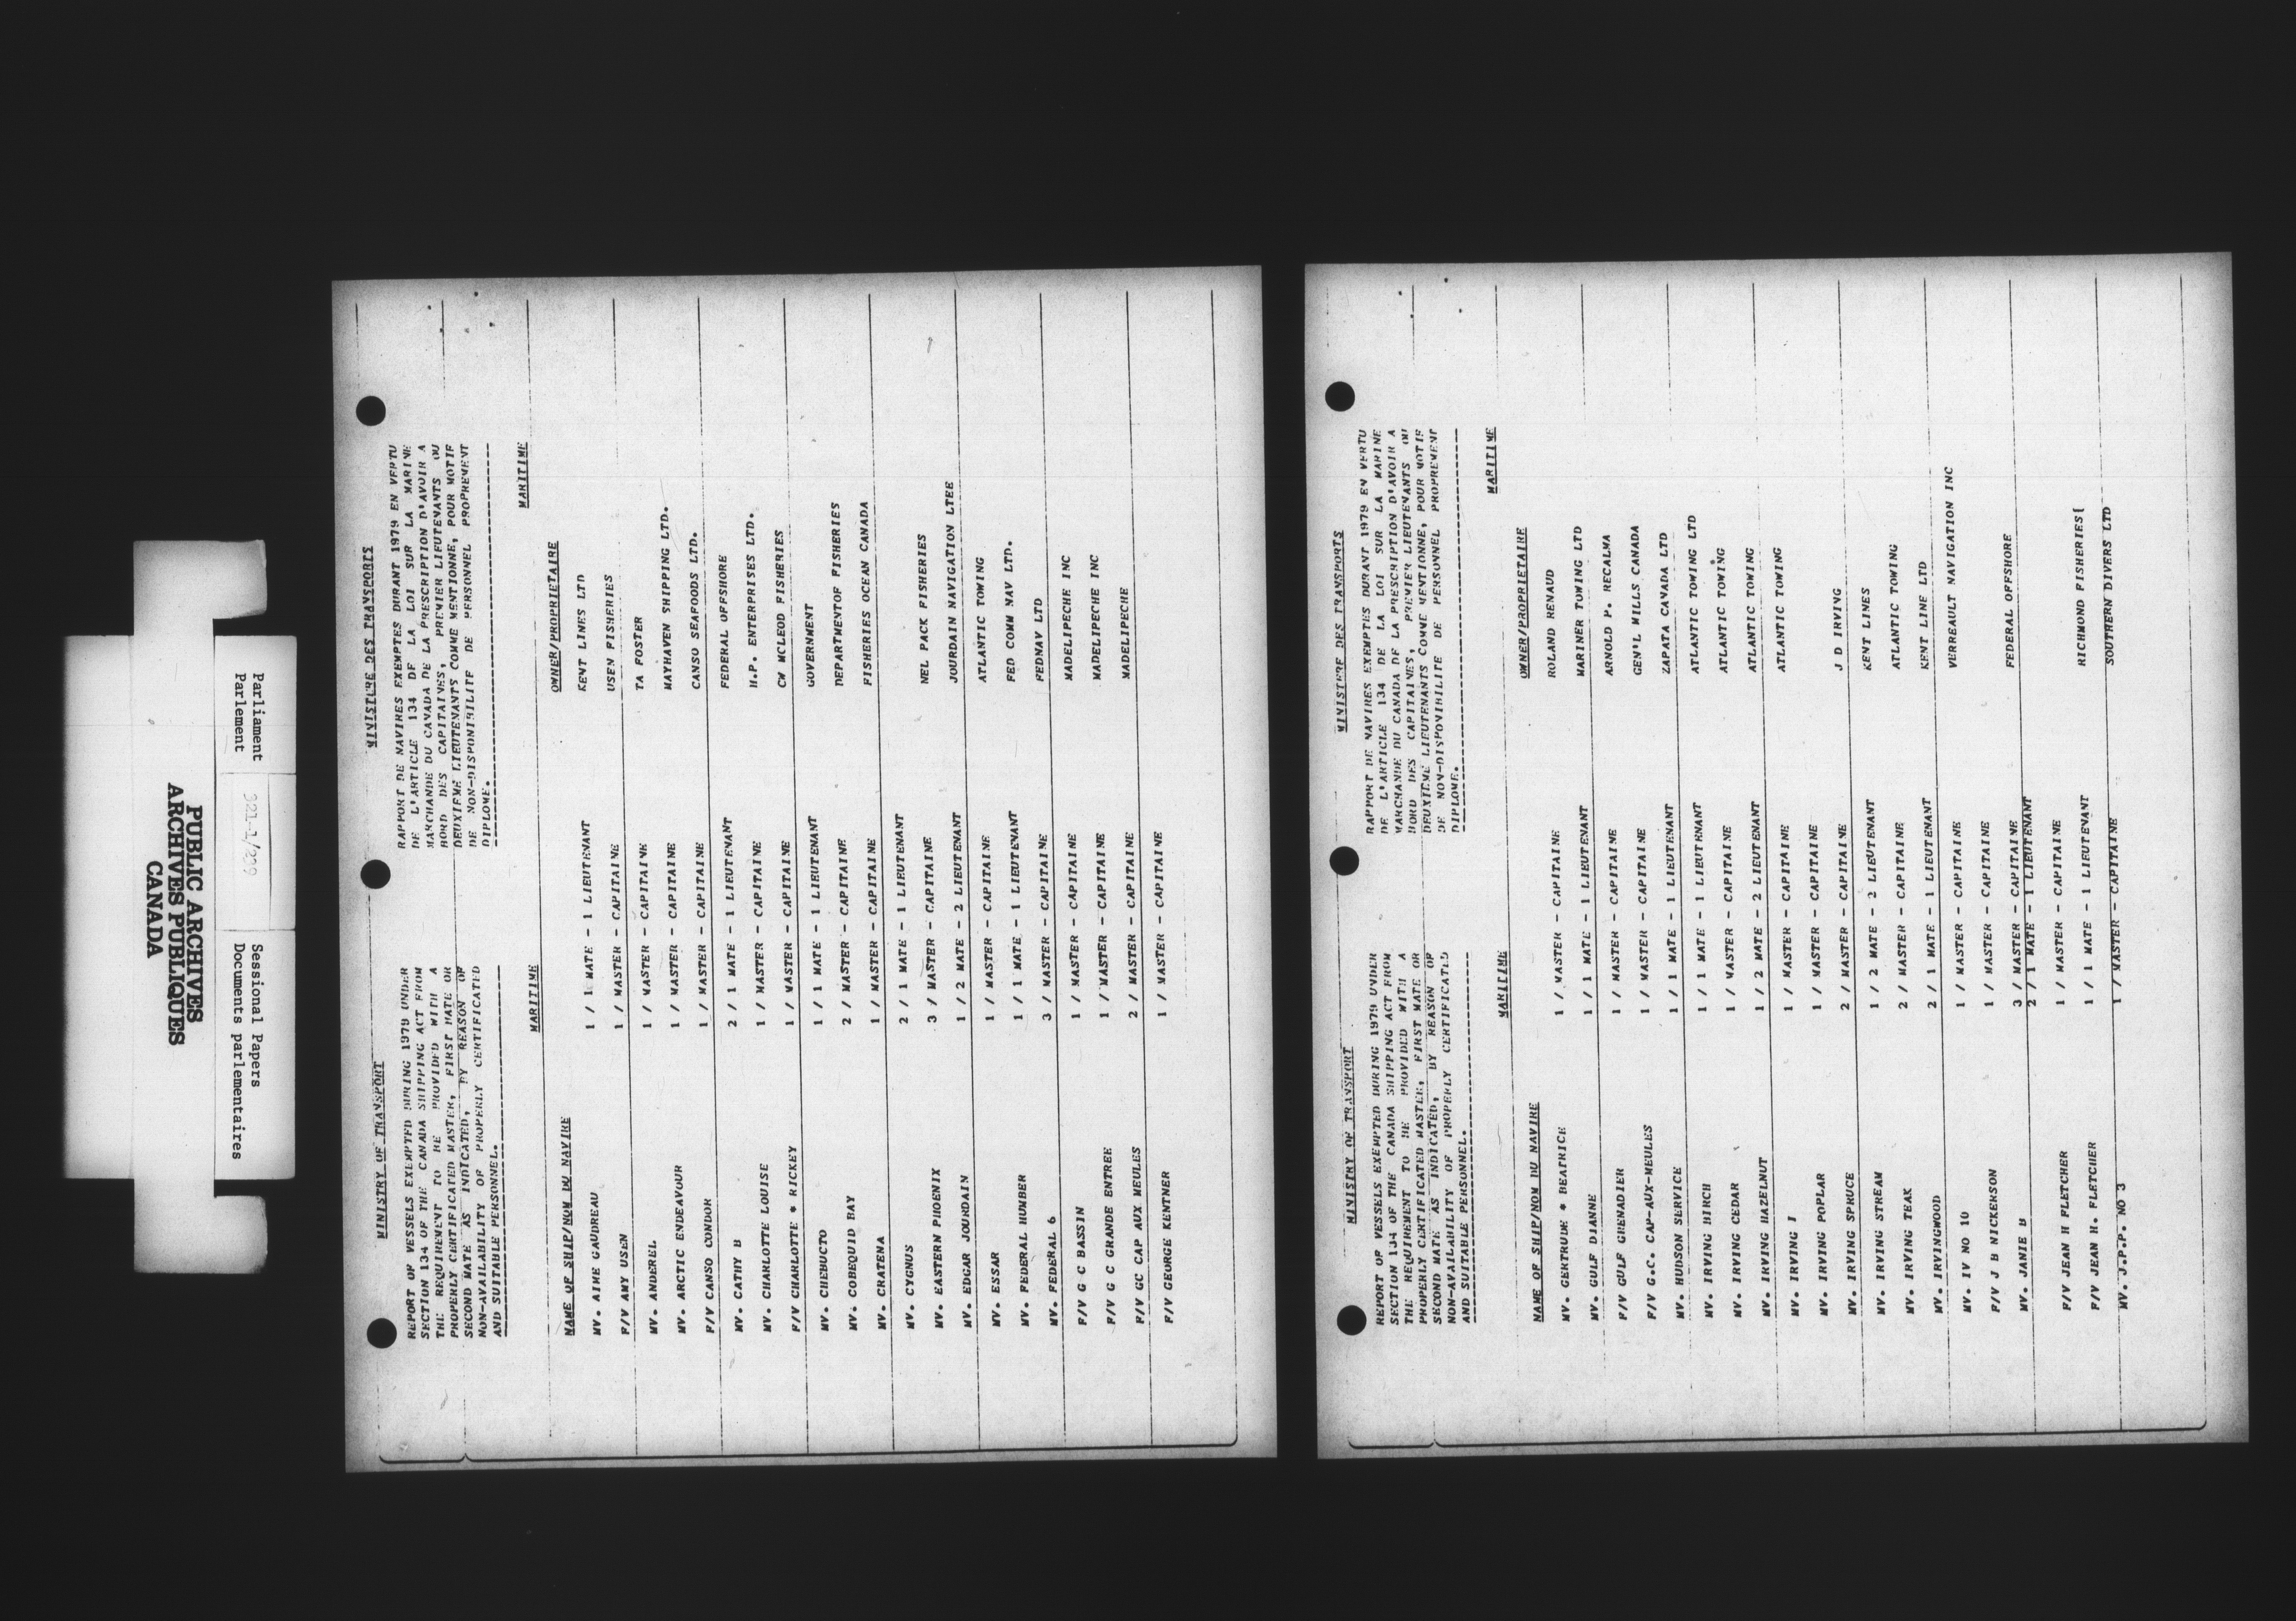 Parliament
Parlement
321-1/299
Sessional Papers
Documents parlementaires
PUBLIC ARCHIVES
ARCHIVES PUBLIQUES
CANADA
MINISTRY OF TRANSPORT
REPORT OF VESSELS EXEMPTED DURING 1979 UNDER
SECTION 134 OF THE CANADA SHIPPING ACT FROM
THE REQUIREMENT TO BE PROVIDED WITH A
PROPERLY CERTIFICATED MASTER, FIRST MATE OR
SECOND MATE AS INDICATED, BY REASON OF
NON-AVAILABILITY OF PROPERLY CERTIFICATED
AND SUITABLE PERSONNEL.
MINISTERE DES TRANSPORTS
RAPPORT DE NAVIRES EXEMPTES DURANT 1979 EN VERTU
DE L'ARTICLE 134 DE LA LOI SUR LA MARINE
MARCHANDE DU CANADA DE LA PRESCRIPTION D'AVOIR A
BORD DES CAPITAINES, PREMIER LIEUTENANTS OU
DEUXIEME LIEUTENANTS COMME MENTIONNE, POUR MOTIF
DE NON-DISPONIBILITE DE PERSONNEL PROPREMENT
DIPLOME.
MARITIME MARITIME
NAME OF SHIP/NOM DU NAVIRE OWNER/PROPRIETAIRE
MV. AIME GAUDREAU 1 / 1 MATE - 1 LIEUTENANT KENT LINES LTD
F/V AMY USEN 1 / MASTER - CAPITAINE USEN FISHERIES
MV. ANDEREL 1 / MASTER - CAPITAINE TA FOSTER
MV. ARCTIC ENDEAVOUR 1 / MASTER - CAPITAINE MAYHAVEN SHIPPING LTD.
F/V CANSO CONDOR 1 / MASTER - CAPITAINE CANSO SEAFOODS LTD.
MV. CATHY B 2 / 1 MATE - 1 LIEUTENANT FEDERAL OFFSHORE
MV. CHARLOTTE LOUISE 1 / MASTER - CAPITAINE H.P. ENTERPRISES LTD.
F/V CHARLOTTE * RICKEY 1 / MASTER - CAPITAINE CW MCLEOD FISHERIES
MV. CHEBUCTO 1 / 1 MATE - 1 LIEUTENANT GOVERNMENT
MV. COBEQUID BAY 2 / MASTER - CAPITAINE DEPARTMENTOF FISHERIES
MV. CRATENA 1 / MASTER - CAPITAINE FISHERIES OCEAN CANADA
MV. CYGNUS 2 / 1 MATE - 1 LIEUTENANT
MV. EASTERN PHOENIX 3 / MASTER - CAPITAINE NEL PACK FISHERIES
MV. EDGAR JOURDAIN 1 / 2 MATE - 2 LIEUTENANT JOURDAIN NAVIGATION LTEE
MV. ESSAR 1 / MASTER - CAPITAINE ATLANTIC TOWING
MV. FEDERAL HUMBER 1 / 1 MATE - 1 LIEUTENANT FED COMM NAV LTD.
MV. FEDERAL 6 3 / MASTER - CAPITAINE FEDNAV LTD
F/V G C BASSIN 1 / MASTER - CAPITAINE MADELIPECHE INC
F/V G C GRANDE ENTREE 1 / MASTER - CAPITAINE MADELIPECHE INC
F/V GC CAP AUX MEULES 2 / MASTER - CAPITAINE MADELIPECHE
F/V GEORGE KENTNER 1 / MASTER - CAPITAINE
MINISTRY OF TRANSPORT
REPORT OF VESSELS EXEMPTED DURING 1979 UNDER
SECTION 134 OF THE CANADA SHIPPING ACT FROM
THE REQUIREMENT TO BE PROVIDED WITH A
PROPERLY CERTIFICATED MASTER, FIRST MATE OR
SECOND MATE AS INDICATED, BY REASON OF
NON-AVAILABILITY OF PROPERLY CERTIFICATED
AND SUITABLE PERSONNEL.
MINISTERE DES TRANSPORTS
RAPPORT DE NAVIRES EXEMPTES DURANT 1979 EN VERTU
DE L'ARTICLE 134 DE LA LOI SUR LA MARINE
MARCHANDE DU CANADA DE LA PRESCRIPTION D'AVOIR A
BORD DES CAPITAINES, PREMIER LIEUTENANTS OU
DEUXIEME LIEUTENANTS COMME MENTIONNE, POUR MOTIF
DE NON-DISPONIBILITE DE PERSONNEL PROPREMENT
DIPLOME.
MARITIME MARITIME
NAME OF SHIP/NOM DU NAVIRE OWNER/PROPRIETAIRE
MV. GERTRUDE * BEATRICE 1 / MASTER - CAPITAINE ROLAND RENAUD
MV. GULF DIANNE 1 / 1 MATE - 1 LIEUTENANT MARINER TOWING LTD
F/V GULF GRENADIER 1 / MASTER - CAPITAINE ARNOLD P. RECALMA
F/V G.C. CAP-AUX-MEULES 1 / MASTER - CAPITAINE GEN'L MILLS CANADA
MV. HUDSON SERVICE 1 / 1 MATE - 1 LIEUTENANT ZAPATA CANADA LTD
MV. IRVING BIRCH 1 / 1 MATE - 1 LIEUTENANT ATLANTIC TOWING LTD
MV. IRVING CEDAR 1 / MASTER - CAPITAINE ATLANTIC TOWING
MV. IRVING HAZELNUT 1 / 2 MATE - 2 LIEUTENANT ATLANTIC TOWING
MV. IRVING I 1 / MASTER - CAPITAINE ATLANTIC TOWING
MV. IRVING POPLAR 1 / MASTER - CAPITAINE
MV. IRVING SPRUCE 2 / MASTER - CAPITAINE J D IRVING
MV. IRVING STREAM 1 / 2 MATE - 2 LIEUTENANT KENT LINES
MV. IRVING TEAK 2 / MASTER - CAPITAINE ATLANTIC TOWING
MV. IRVINGWOOD 2 / 1 MATE - 1 LIEUTENANT KENT LINE LTD
MV. IV NO 10 1 / MASTER - CAPITAINE VERREAULT NAVIGATION INC
F/V J B NICKERSON 1 / MASTER - CAPITAINE
MV. JANIE B 3 / MASTER - CAPITAINE FEDERAL OFFSHORE
2 / 1 MATE - 1 LIEUTENANT
F/V JEAN H FLETCHER 1 / MASTER - CAPITAINE
F/V JEAN H. FLETCHER 1 / 1 MATE - 1 LIEUTENANT RICHMOND FISHERIES[
MV. J.P.P. NO 3 1 / MASTER - CAPITAINE SOUTHERN DIVERS LTD